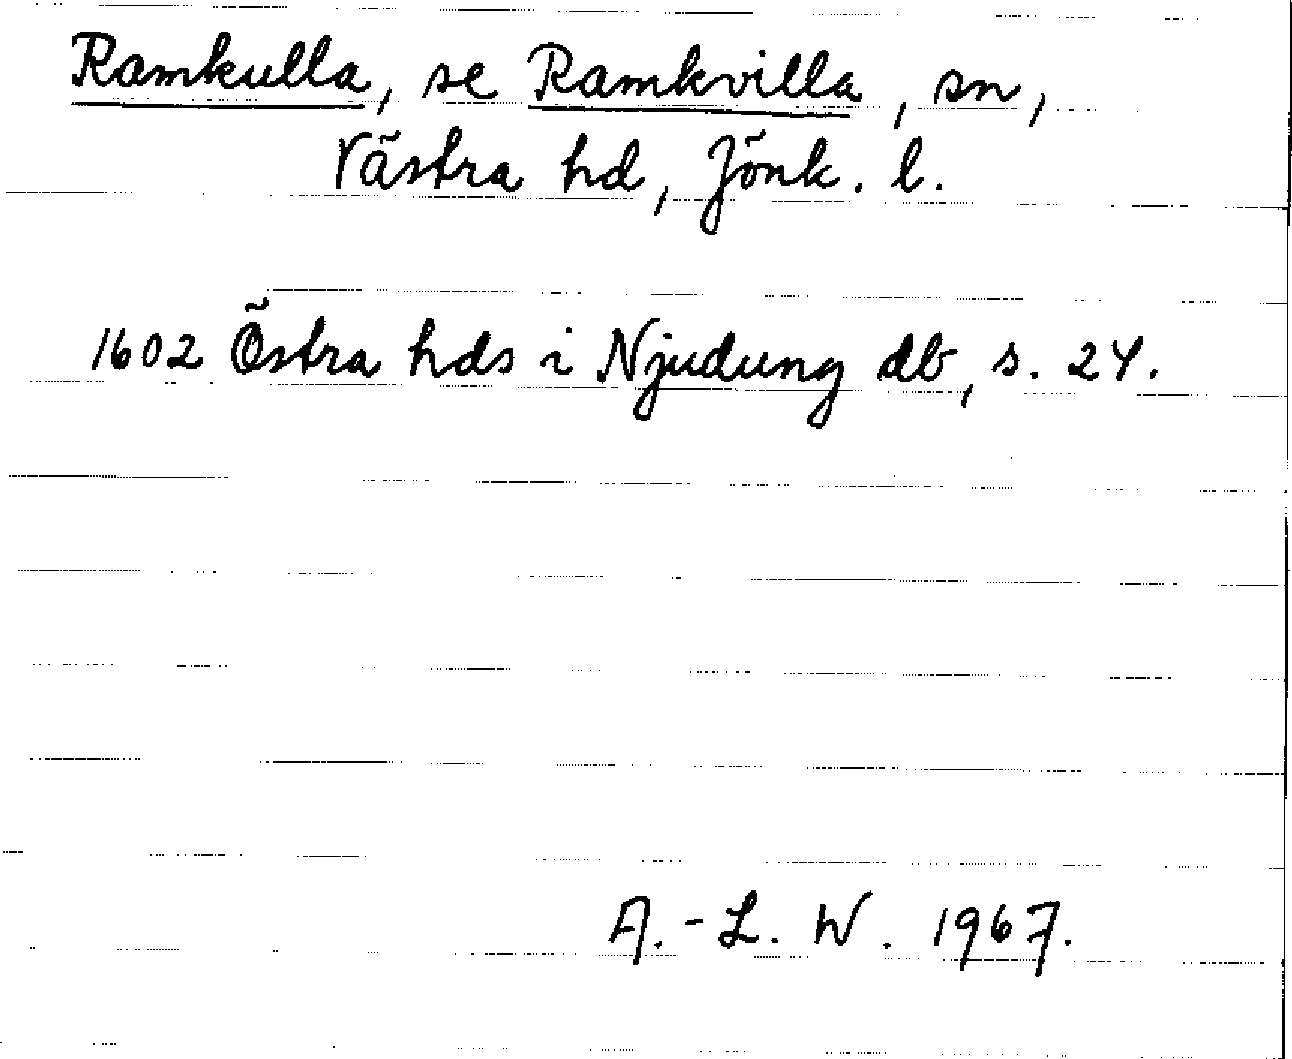 Ramkulla, se Ramkvilla, sn,
Västra hd, Jönk. l.
1602 Östra hds i Njudung db, s. 24.
A.-L. W. 1967.